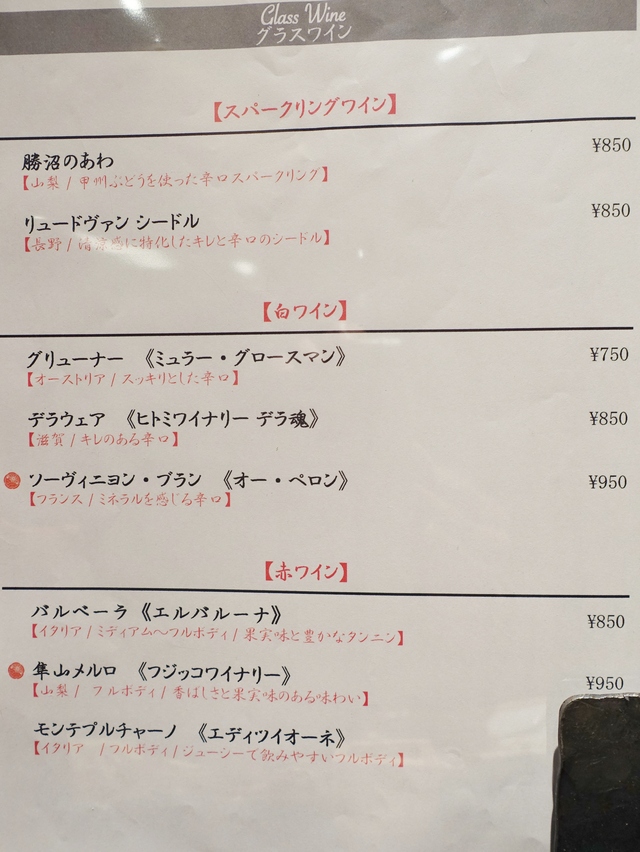 Glass Wine
グラスワイン
【スパークリングワイン】
勝沼のあわ ¥850
【山梨 / 甲州ぶどうを使った辛口スパークリング】
リュードヴァン シードル ¥850
【長野 / 清涼感に特化したキレと辛口のシードル】
【白ワイン】
グリューナー 《ミュラー・グロースマン》 ¥750
【オーストリア / スッキリとした辛口】
デラウェア 《ヒトミワイナリー デラ魂》 ¥850
【滋賀 / キレのある辛口】
ソーヴィニヨン・ブラン 《オー・ペロン》 ¥950
【フランス / ミネラルを感じる辛口】
【赤ワイン】
バルベーラ 《エルバルーナ》 ¥850
【イタリア / ミディアム〜フルボディ / 果実味と豊かなタンニン】
隼山メルロ 《フジッコワイナリー》 ¥950
【山梨 / フルボディ / 香ばしさと果実味のある味わい】
モンテプルチャーノ 《エディツイオーネ》
【イタリア / フルボディ / ジューシーで飲みやすいフルボディ】